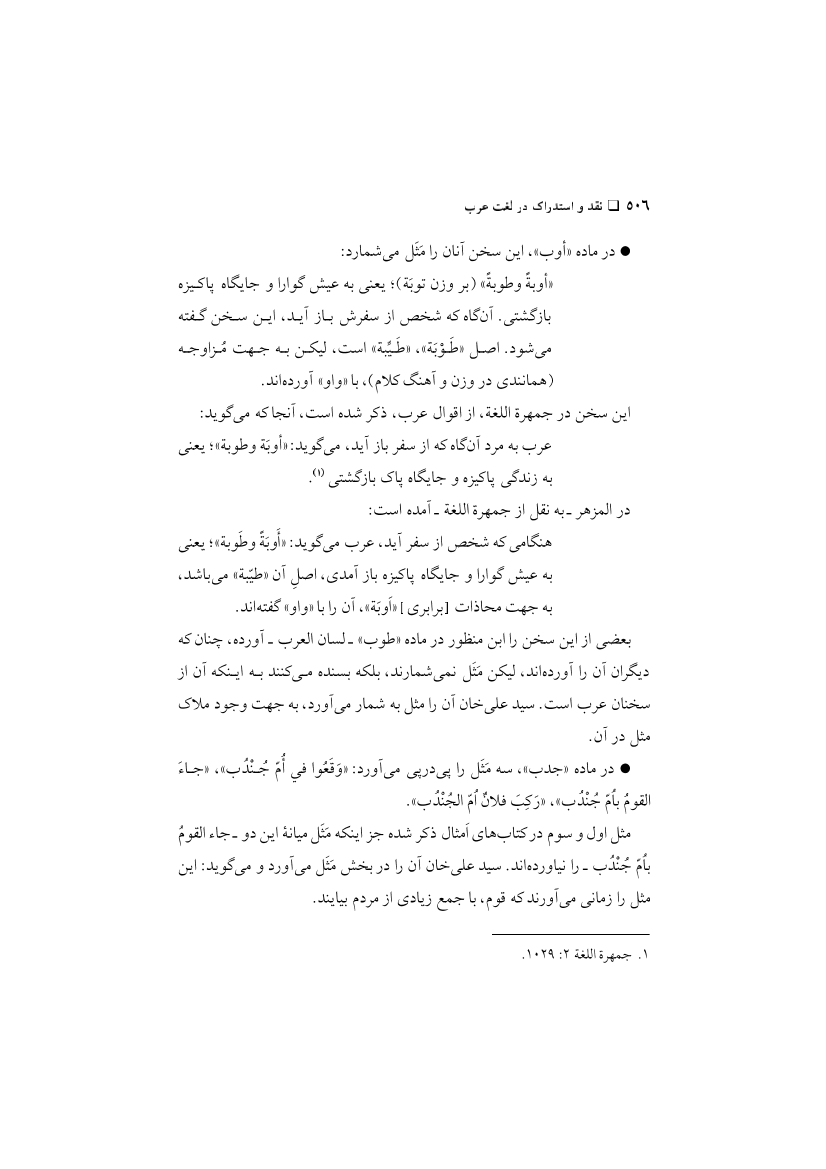 ٥٠٦ ❏ نقد و استدراک در لغت عرب
● در ماده «أوب»، این سخن آنان را مَثَل می‌شمارد:
«أوبةً وطوبةً» (بر وزن توبَة)؛ یعنی به عیش گوارا و جایگاه پاکیزه
بازگشتی. آن‌گاه که شخص از سفرش باز آید، این سخن گفته
می‌شود. اصل «طَوْبَة»، «طَیِّبة» است، لیکن به جهت مُزاوجه
(همانندی در وزن و آهنگ کلام)، با «واو» آورده‌اند.
این سخن در جمهرة اللغة، از اقوال عرب، ذکر شده است، آنجا که می‌گوید:
عرب به مرد آن‌گاه که از سفر باز آید، می‌گوید: «أوبَة وطوبة»؛ یعنی
به زندگی پاکیزه و جایگاه پاک بازگشتی (۱).
در المزهر ـ به نقل از جمهرة اللغة ـ آمده است:
هنگامی که شخص از سفر آید، عرب می‌گوید: «أَوبَةً وطَوبة»؛ یعنی
به عیش گوارا و جایگاه پاکیزه باز آمدی، اصلِ آن «طیّبة» می‌باشد،
به جهت محاذات [برابری] «اَوبَة»، آن را با «واو» گفته‌اند.
بعضی از این سخن را ابن منظور در ماده «طوب» ـ لسان العرب ـ آورده، چنان که
دیگران آن را آورده‌اند، لیکن مَثَل نمی‌شمارند، بلکه بسنده می‌کنند به اینکه آن از
سخنان عرب است. سید علی‌خان آن را مثل به شمار می‌آورد، به جهت وجود ملاک
مثل در آن.
● در ماده «جدب»، سه مَثَل را پی‌درپی می‌آورد: «وَقَعُوا في أُمّ جُنْدُب»، «جاءَ
القومُ بأمّ جُنْدُب»، «رَکِبَ فلانٌ اُمّ الجُنْدُب».
مثل اول و سوم در کتاب‌های اَمثال ذکر شده جز اینکه مَثَل میانهٔ این دو ـ جاء القومُ
بأمّ جُنْدُب ـ را نیاورده‌اند. سید علی‌خان آن را در بخش مَثَل می‌آورد و می‌گوید: این
مثل را زمانی می‌آورند که قوم، با جمع زیادی از مردم بیایند.
۱. جمهرة اللغة ۲: ۱۰۲۹.